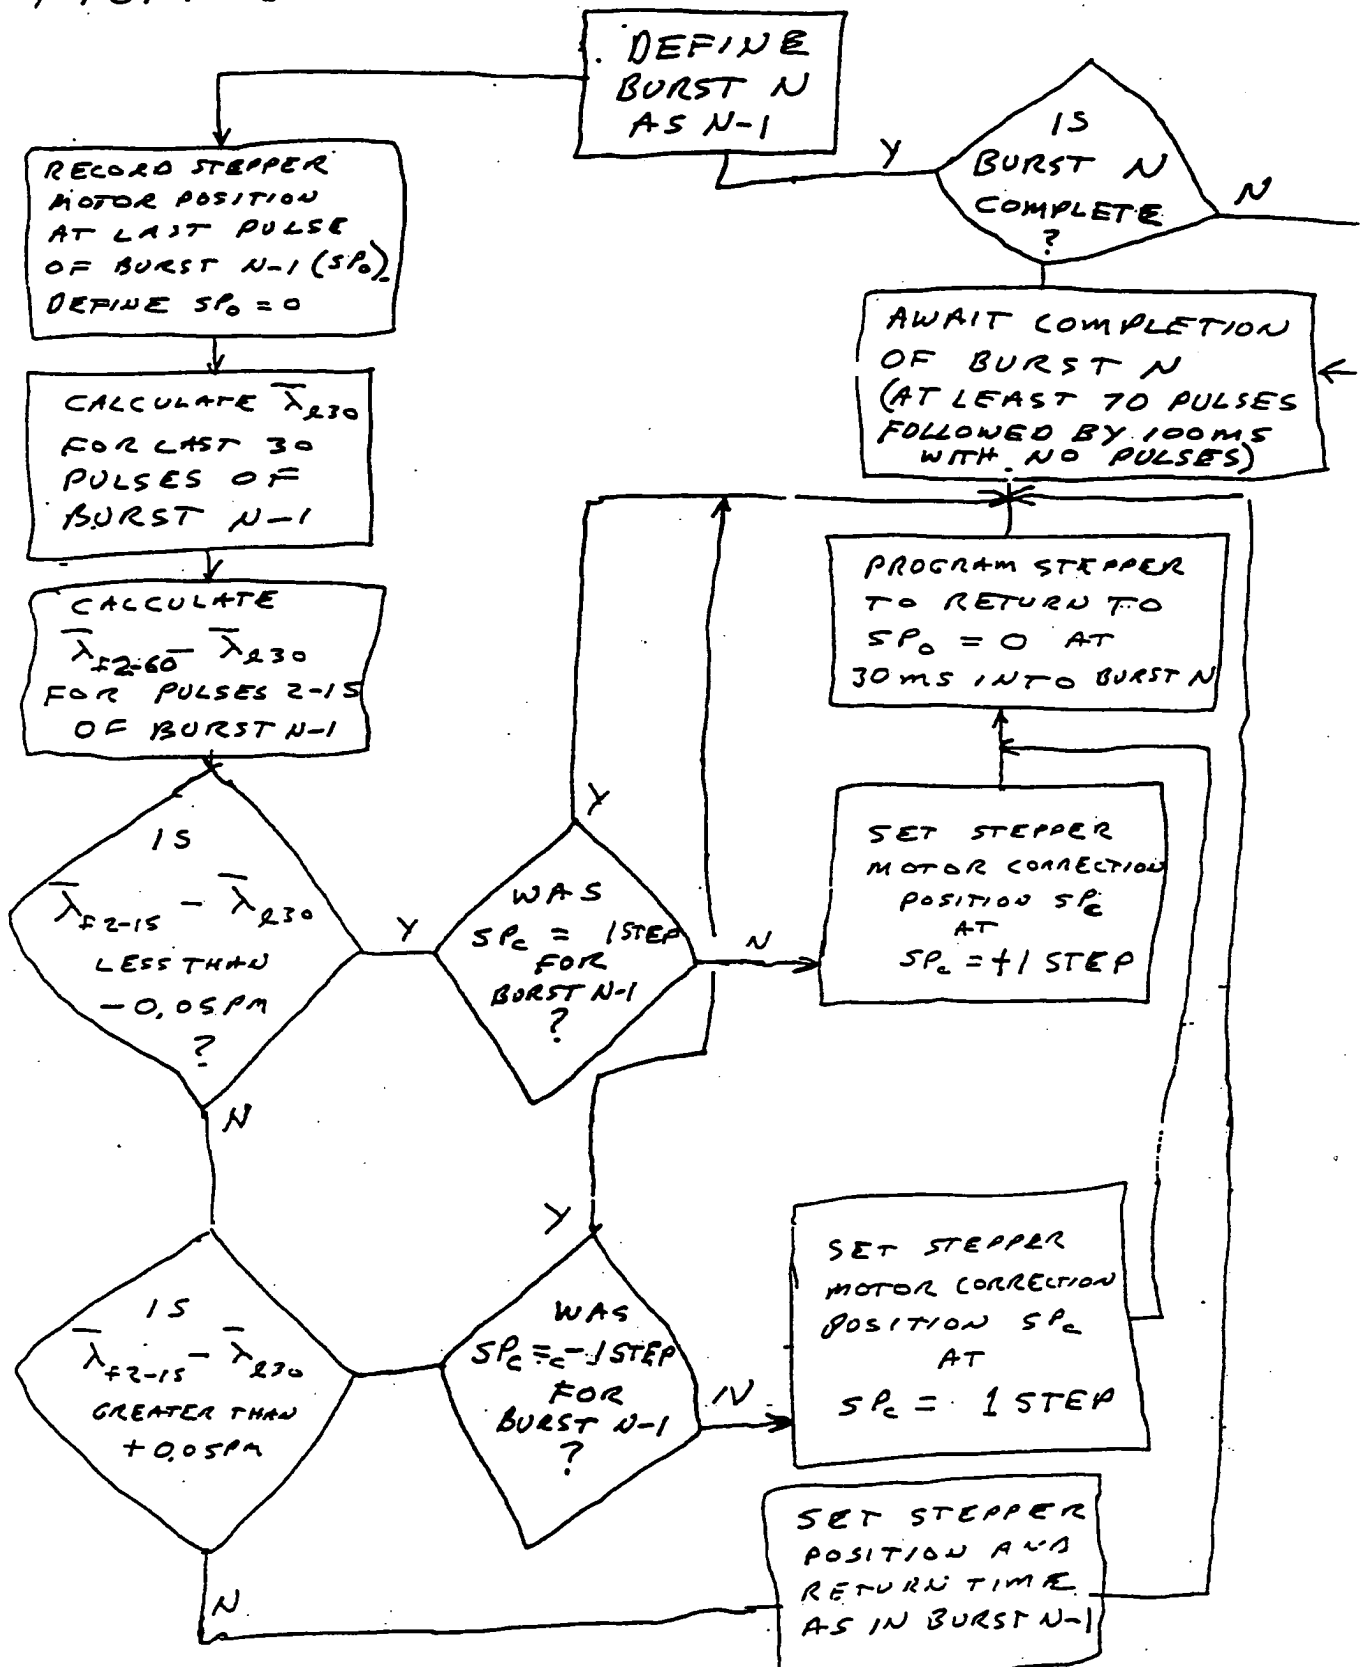 DEFINE
BURST N
AS N-1
IS
BURST N
COMPLETE
?
Y
N
RECORD STEPPER
MOTOR POSITION
AT LAST PULSE
OF BURST N-1 (SP₀)
DEFINE SP₀ = 0
AWAIT COMPLETION
OF BURST N
(AT LEAST 70 PULSES
FOLLOWED BY 100MS
WITH NO PULSES)
CALCULATE λ̄ℓ30
FOR LAST 30
PULSES OF
BURST N-1
PROGRAM STEPPER
TO RETURN TO
SP₀ = 0 AT
30 MS INTO BURST N
CALCULATE
λ̄f2-60 - λ̄ℓ30
FOR PULSES 2-15
OF BURST N-1
IS
λ̄f2-15 - λ̄ℓ30
LESS THAN
-0.05PM
?
Y
N
Y
WAS
SPc = 1 STEP
FOR
BURST N-1
?
N
SET STEPPER
MOTOR CORRECTION
POSITION SPc
AT
SPc = +1 STEP
IS
λ̄f2-15 - λ̄ℓ30
GREATER THAN
+0.05PM
N
Y
WAS
SPc = c - 1 STEP
FOR
BURST N-1
?
N
SET STEPPER
MOTOR CORRECTION
POSITION SPc
AT
SPc = 1 STEP
SET STEPPER
POSITION AND
RETURN TIME
AS IN BURST N-1